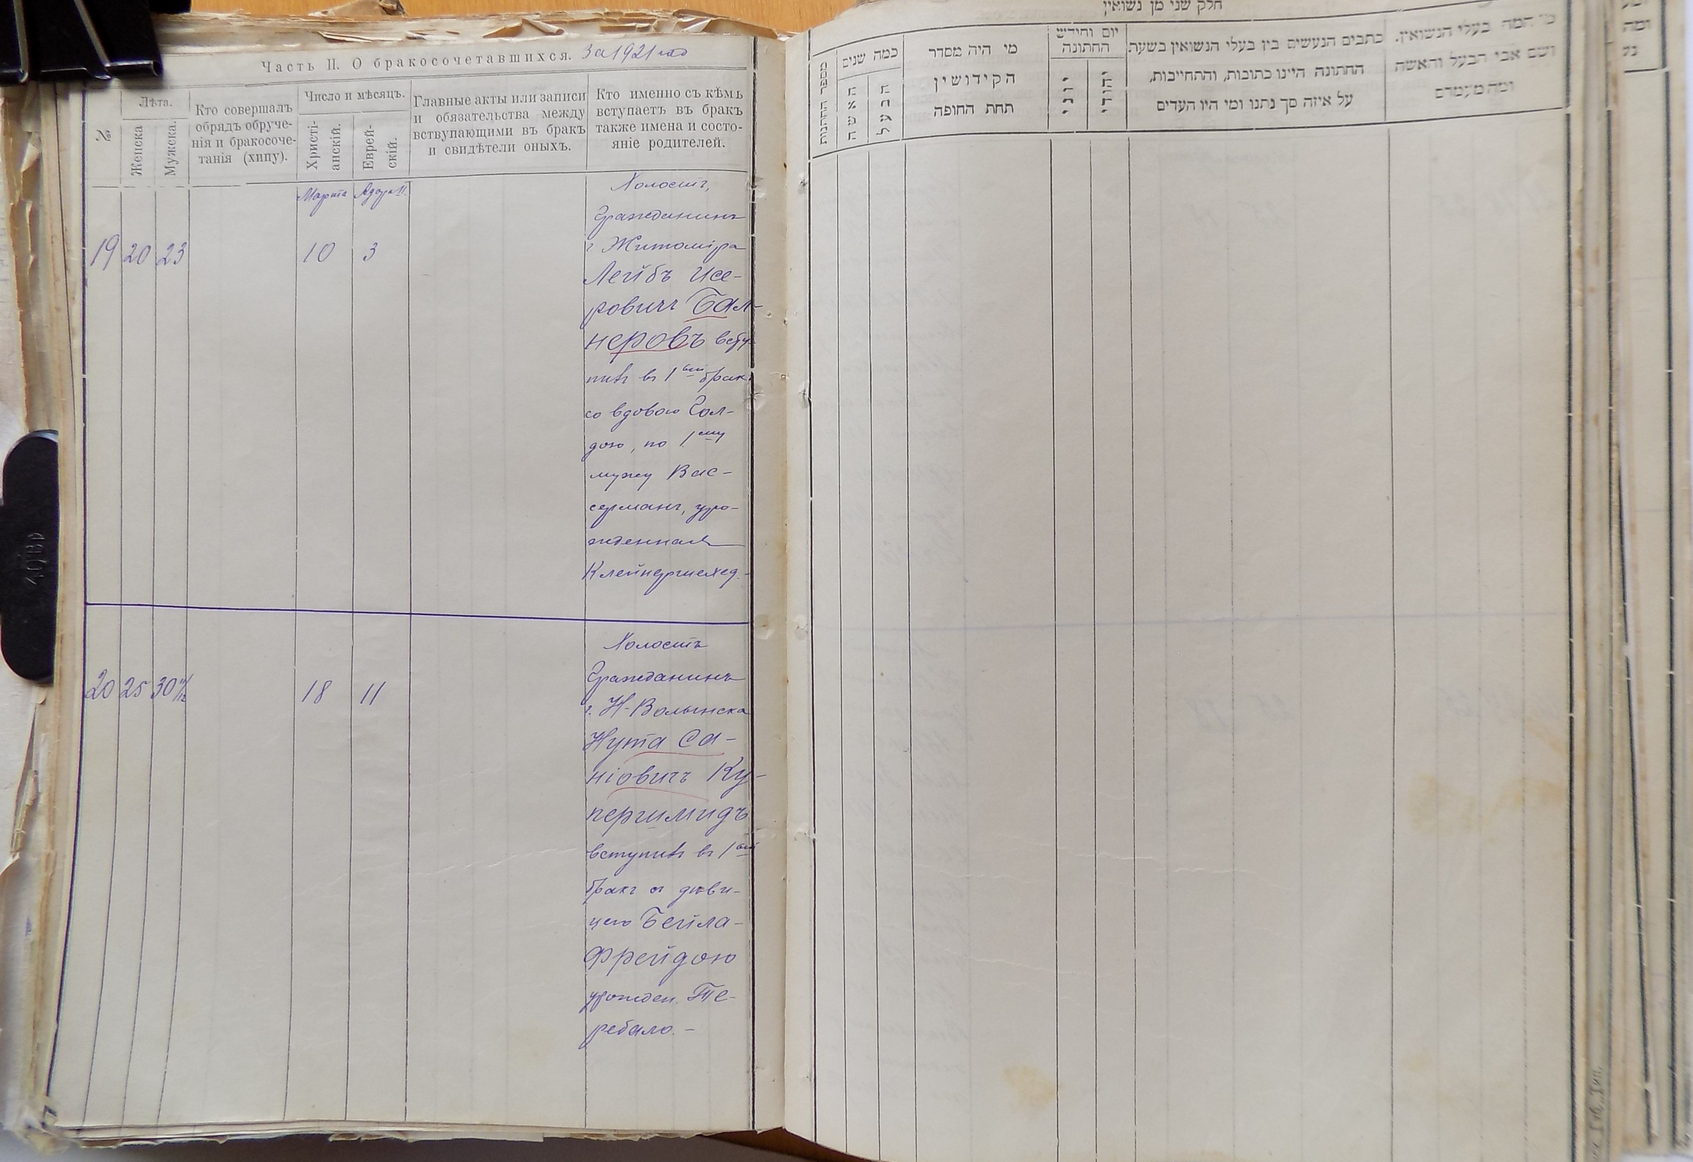 Часть II. О бракосочетавшихся. За 1921 год
№
Лѣта.
Женска
Мужска.
Кто совершалъ
обрядъ обруче-
нія и бракосоче-
танія (хипу).
Число и мѣсяцъ.
Христі-
анскій.
Еврей-
скій.
Главные акты или записи
и обязательства между
вступающими въ бракъ
и свидѣтели оныхъ.
Кто именно съ кѣмъ
вступаетъ въ бракъ
также имена и состо-
яніе родителей.
Марта Адара II.
19 20 23 10 3
Холостъ,
Гражданинъ
г Житоміра
Лейбъ Исе-
ровичъ Бал-
неровъ всту-
пилъ въ 1ый бракъ
со вдовою Гол-
дою, по 1ому
мужу Вас-
серманъ, уро-
жденная
20 25 30 18 11
Холостъ
Гражданинъ
г. Н-Волынска
Нута Са-
ніовичъ Ку-
першмидъ
вступилъ въ 1ый
бракъ съ дѣви-
цею Бейла-
Фрейдою
урожден. Те-
ребало.-
חלק שני מן נשואין
מספר החתונות
כמה שנים
האשה
הבעל
מי היה מסדר
הקידושין
תחת החופה
יום וחודש
החתונה
יווני
יהודי
כתבים הנעשים בין בעלי הנשואין בשעת
החתונה היינו כתובות, והתחייבות,
על איזה סך נתנו ומי היו העדים
מי המה בעלי הנשואין.
ושם אבי הבעל והאשה
ומה מעמדם